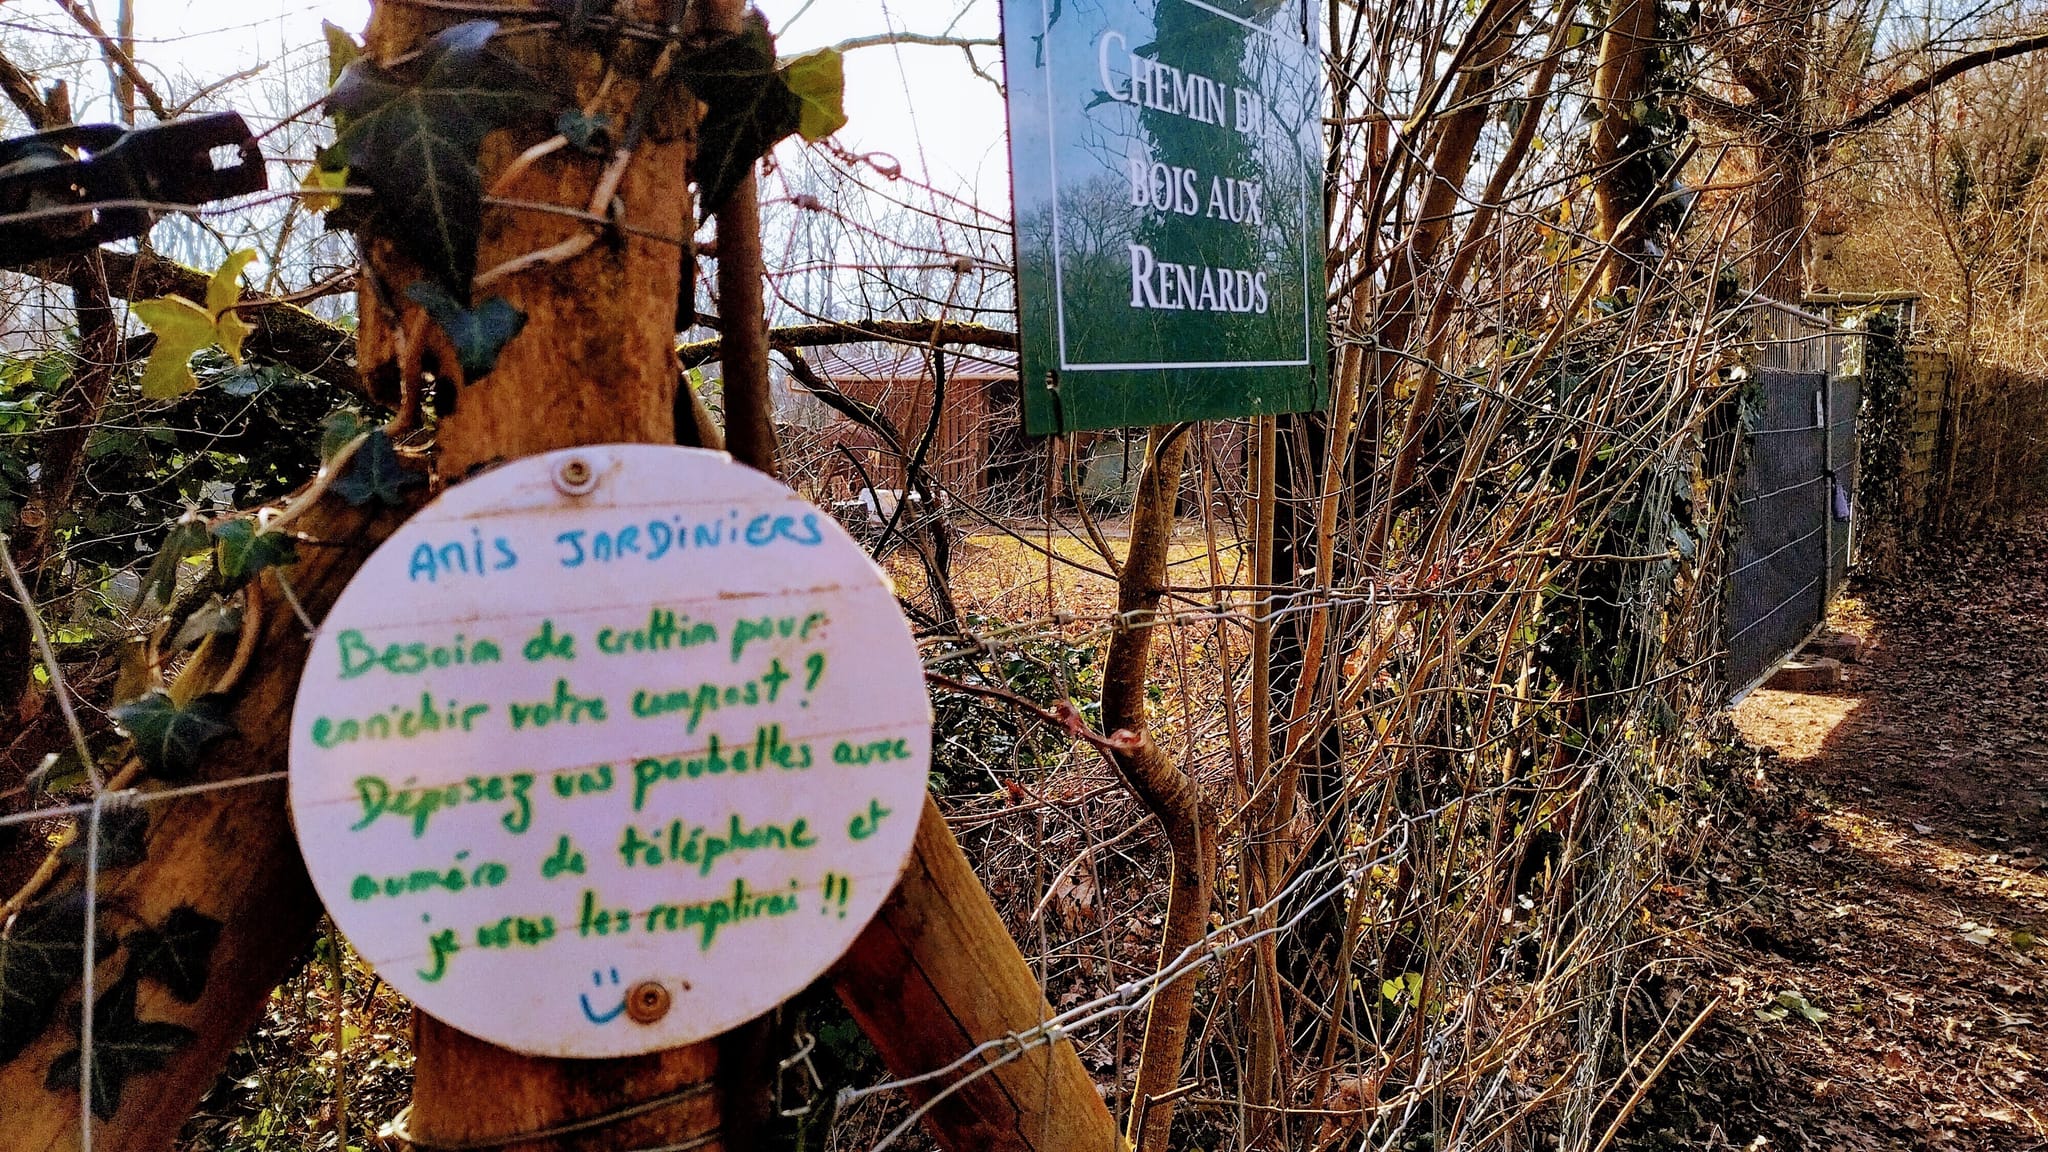 CHEMIN DU
BOIS AUX
RENARDS
AMIS JARDINIERS
Besoin de crottin pour
enrichir votre compost ?
Déposez vos poubelles avec
numéro de téléphone et
je vous les remplirai !!